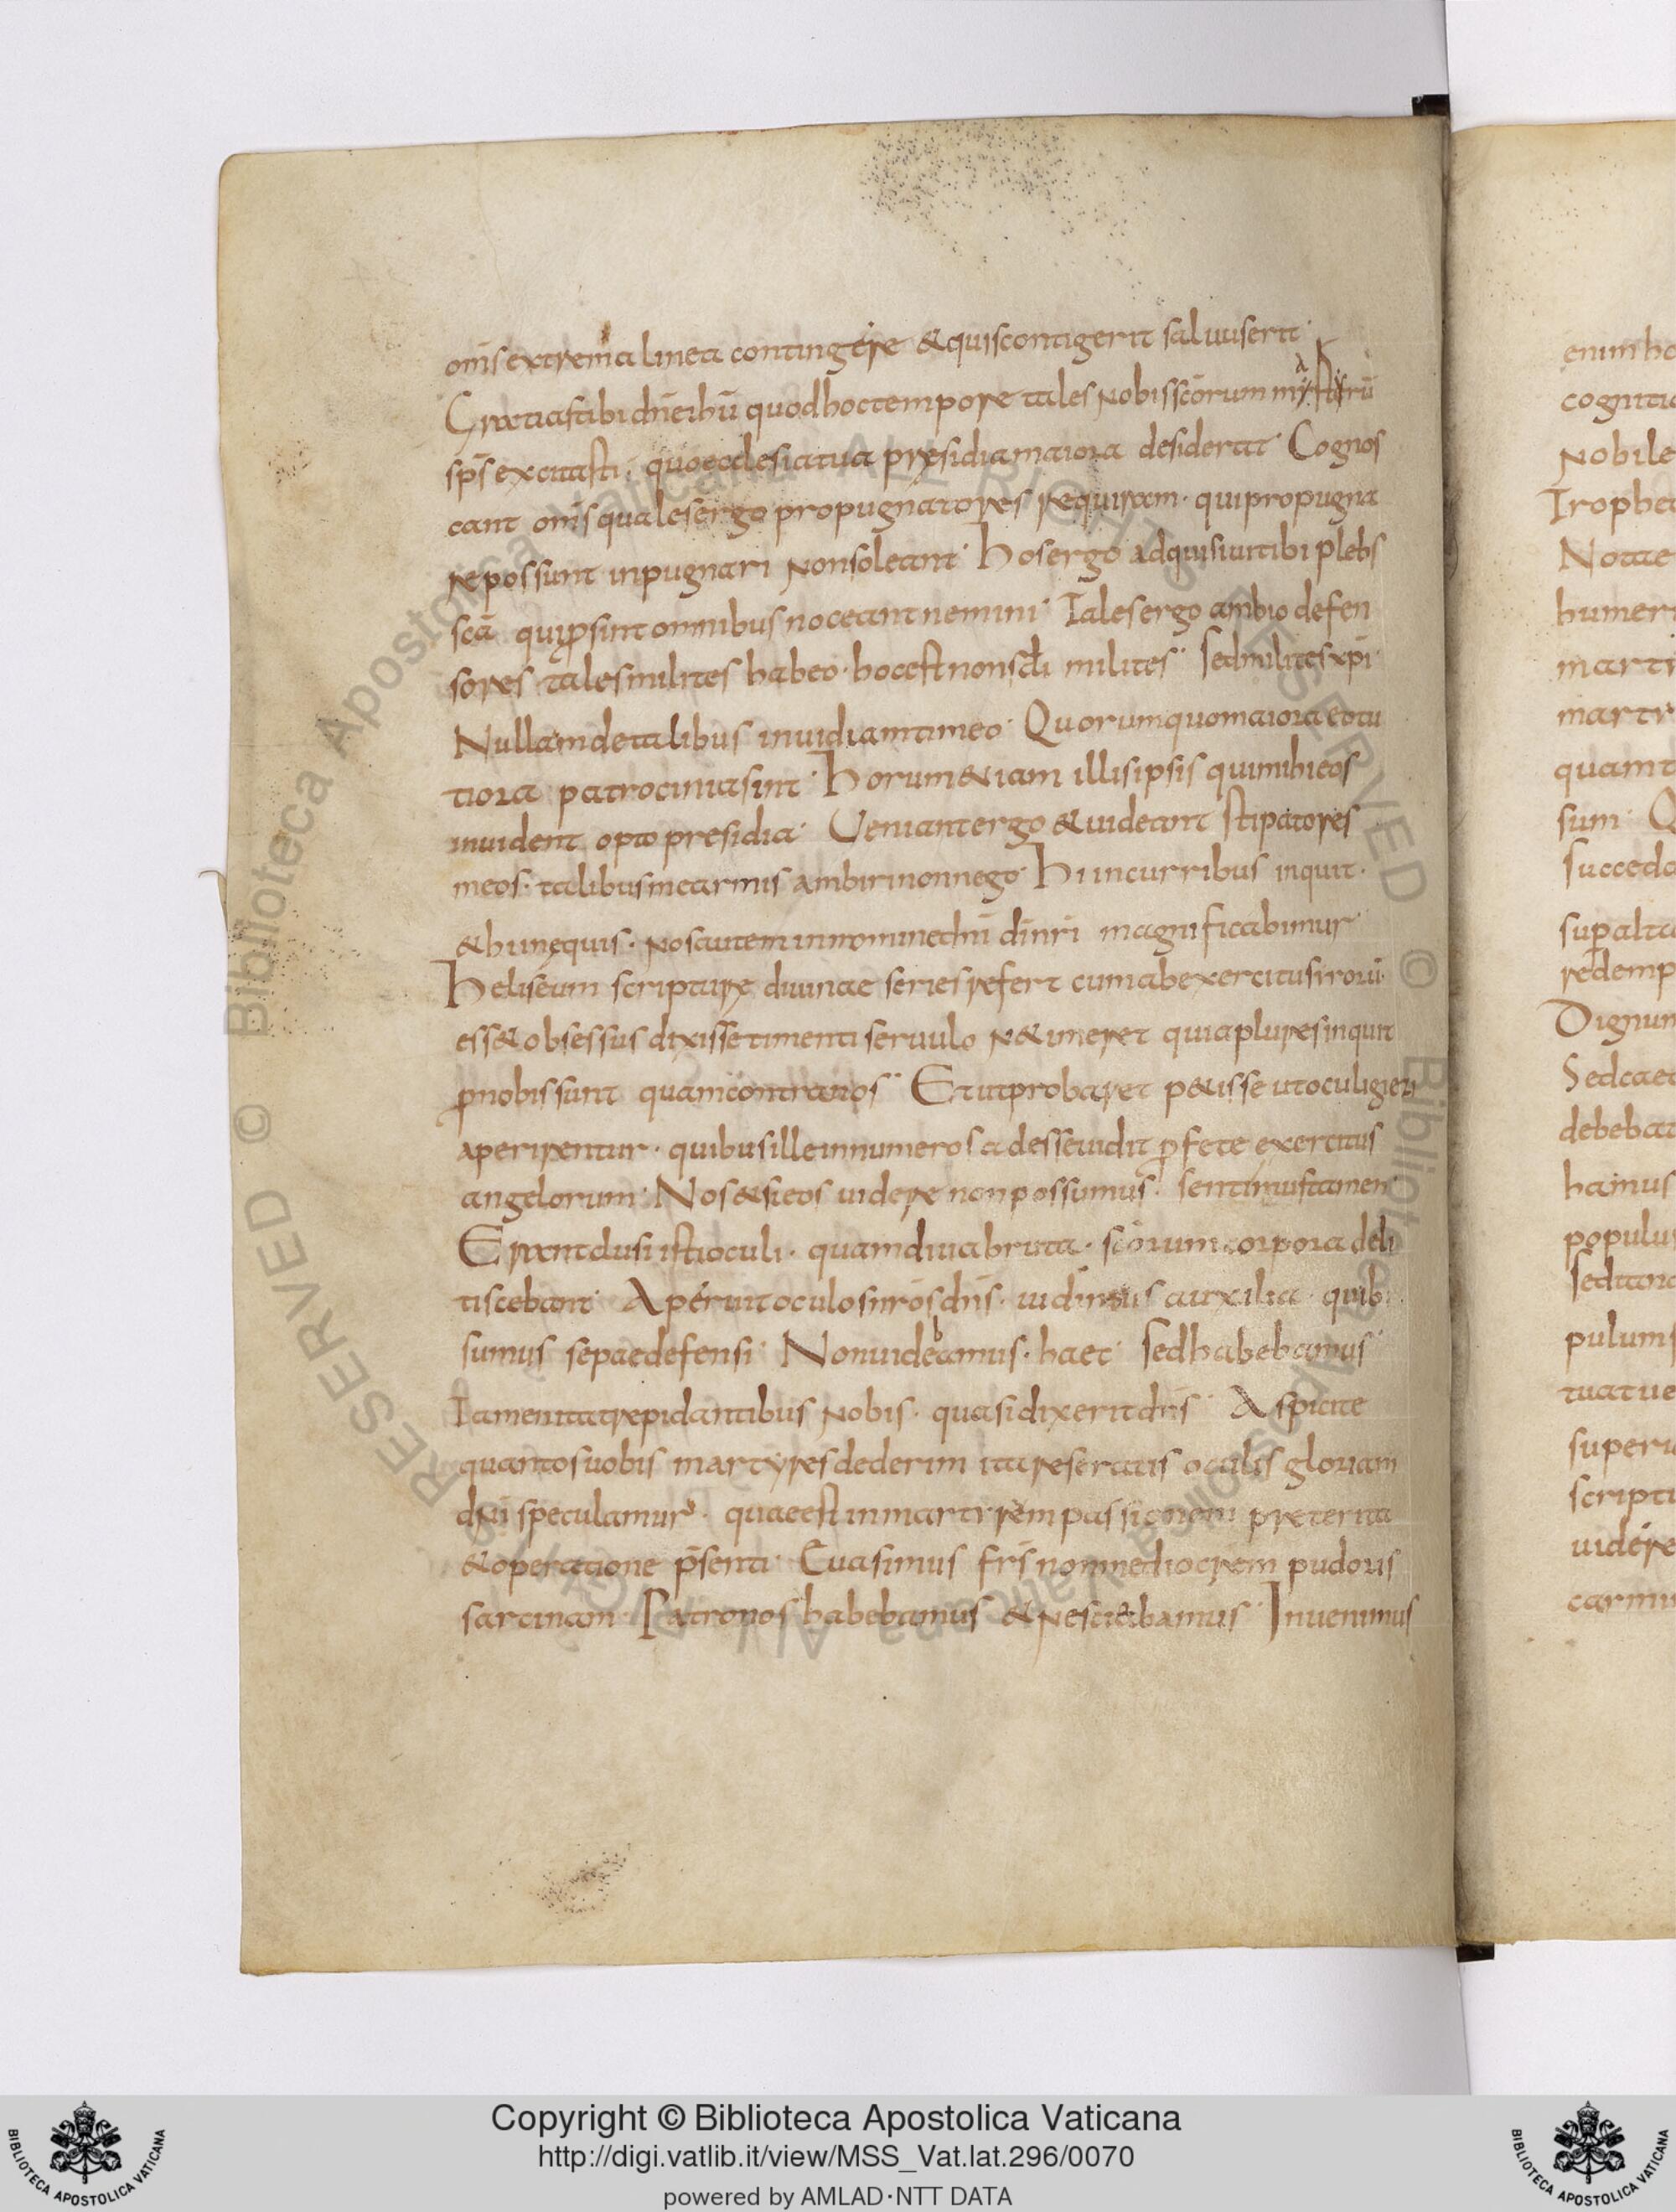 om̄s extrema linea contingere & quis contigerit saluus erit
Gratias tibi dn̄e ih̄u quod hoc tempore tales nobis sc̄orum martyrū
sp̄s excitasti quo ecclesia tua presidia maiora desiderat Cognos
cant om̄s quales ergo propugnatores requiram qui propugna
re possunt inpugnari non soleant Hos ergo adquisiui tibi plebs
sc̄a qui prosint omnibus noceant nemini Tales ergo ambio defen
sores tales milites habeo hoc est non sc̄li milites sed milites xp̄i
Nullam de talibus inuidiam timeo Quorum quo maiora eo tu
tiora patrocinia sint Horum &iam illis ipsis qui mihi eos
inuident opto presidia Ueniant ergo & uideant stipatores
meos talibus me armis ambiri non nego Hi in curribus inquit
& hi in equis nos autem in nomine dn̄i di n̄ri magnificabimur
Heliseum scripture diuinae series refert cum ab exercitu siroru
ess& obsessus dixisse timenti seruulo ne timeret quia plures inquit
pro nobis sunt quam contra nos Et ut probaret petisse ut oculi giezi
aperirentur quibus ille innumeros adesse uidit profete exercitus
angelorum Nos &si eos uidere non possumus sentimus tamen
Erant dusi isti oculi quamdiu abruta sc̄orum corpora deli
tiscebant Aperuit oculos n̄ros dn̄s uidimus auxilia quib
sumus sepae defensi Non uidebamus haec sed habebamus
Tamen ita trepidantibus nobis quasi dixerit dn̄s Aspicite
quantos uobis martyres dederim ita reseratis oculis gloriam
dn̄i speculamur quae est in martirem passionem preterita
& operatione p̄senti Euasimus frs̄ non mediocrem pudoris
sarcinam Patronos habebamus & nesciebamus Inuenimus
enim ho
cognitio
Nobile
Trophea
Notae
humeri
marti
martir
quam t
sum Q
succeda
sup alta
redemp
Dignum
Sed cae
debebat
hamus
populus
sed tand
pulum s
tua tue
superi
scripti
uidere
carmi
© Biblioteca Apostolica Vaticana ALL RIGHTS RESERVED © Biblioteca Apostolica Vaticana ALL RIGHTS RESERVED
Copyright © Biblioteca Apostolica Vaticana
http://digi.vatlib.it/view/MSS_Vat.lat.296/0070
powered by AMLAD·NTT DATA
BIBLIOTECA APOSTOLICA VATICANA
BIBLIOTECA APOSTOLICA VATICANA